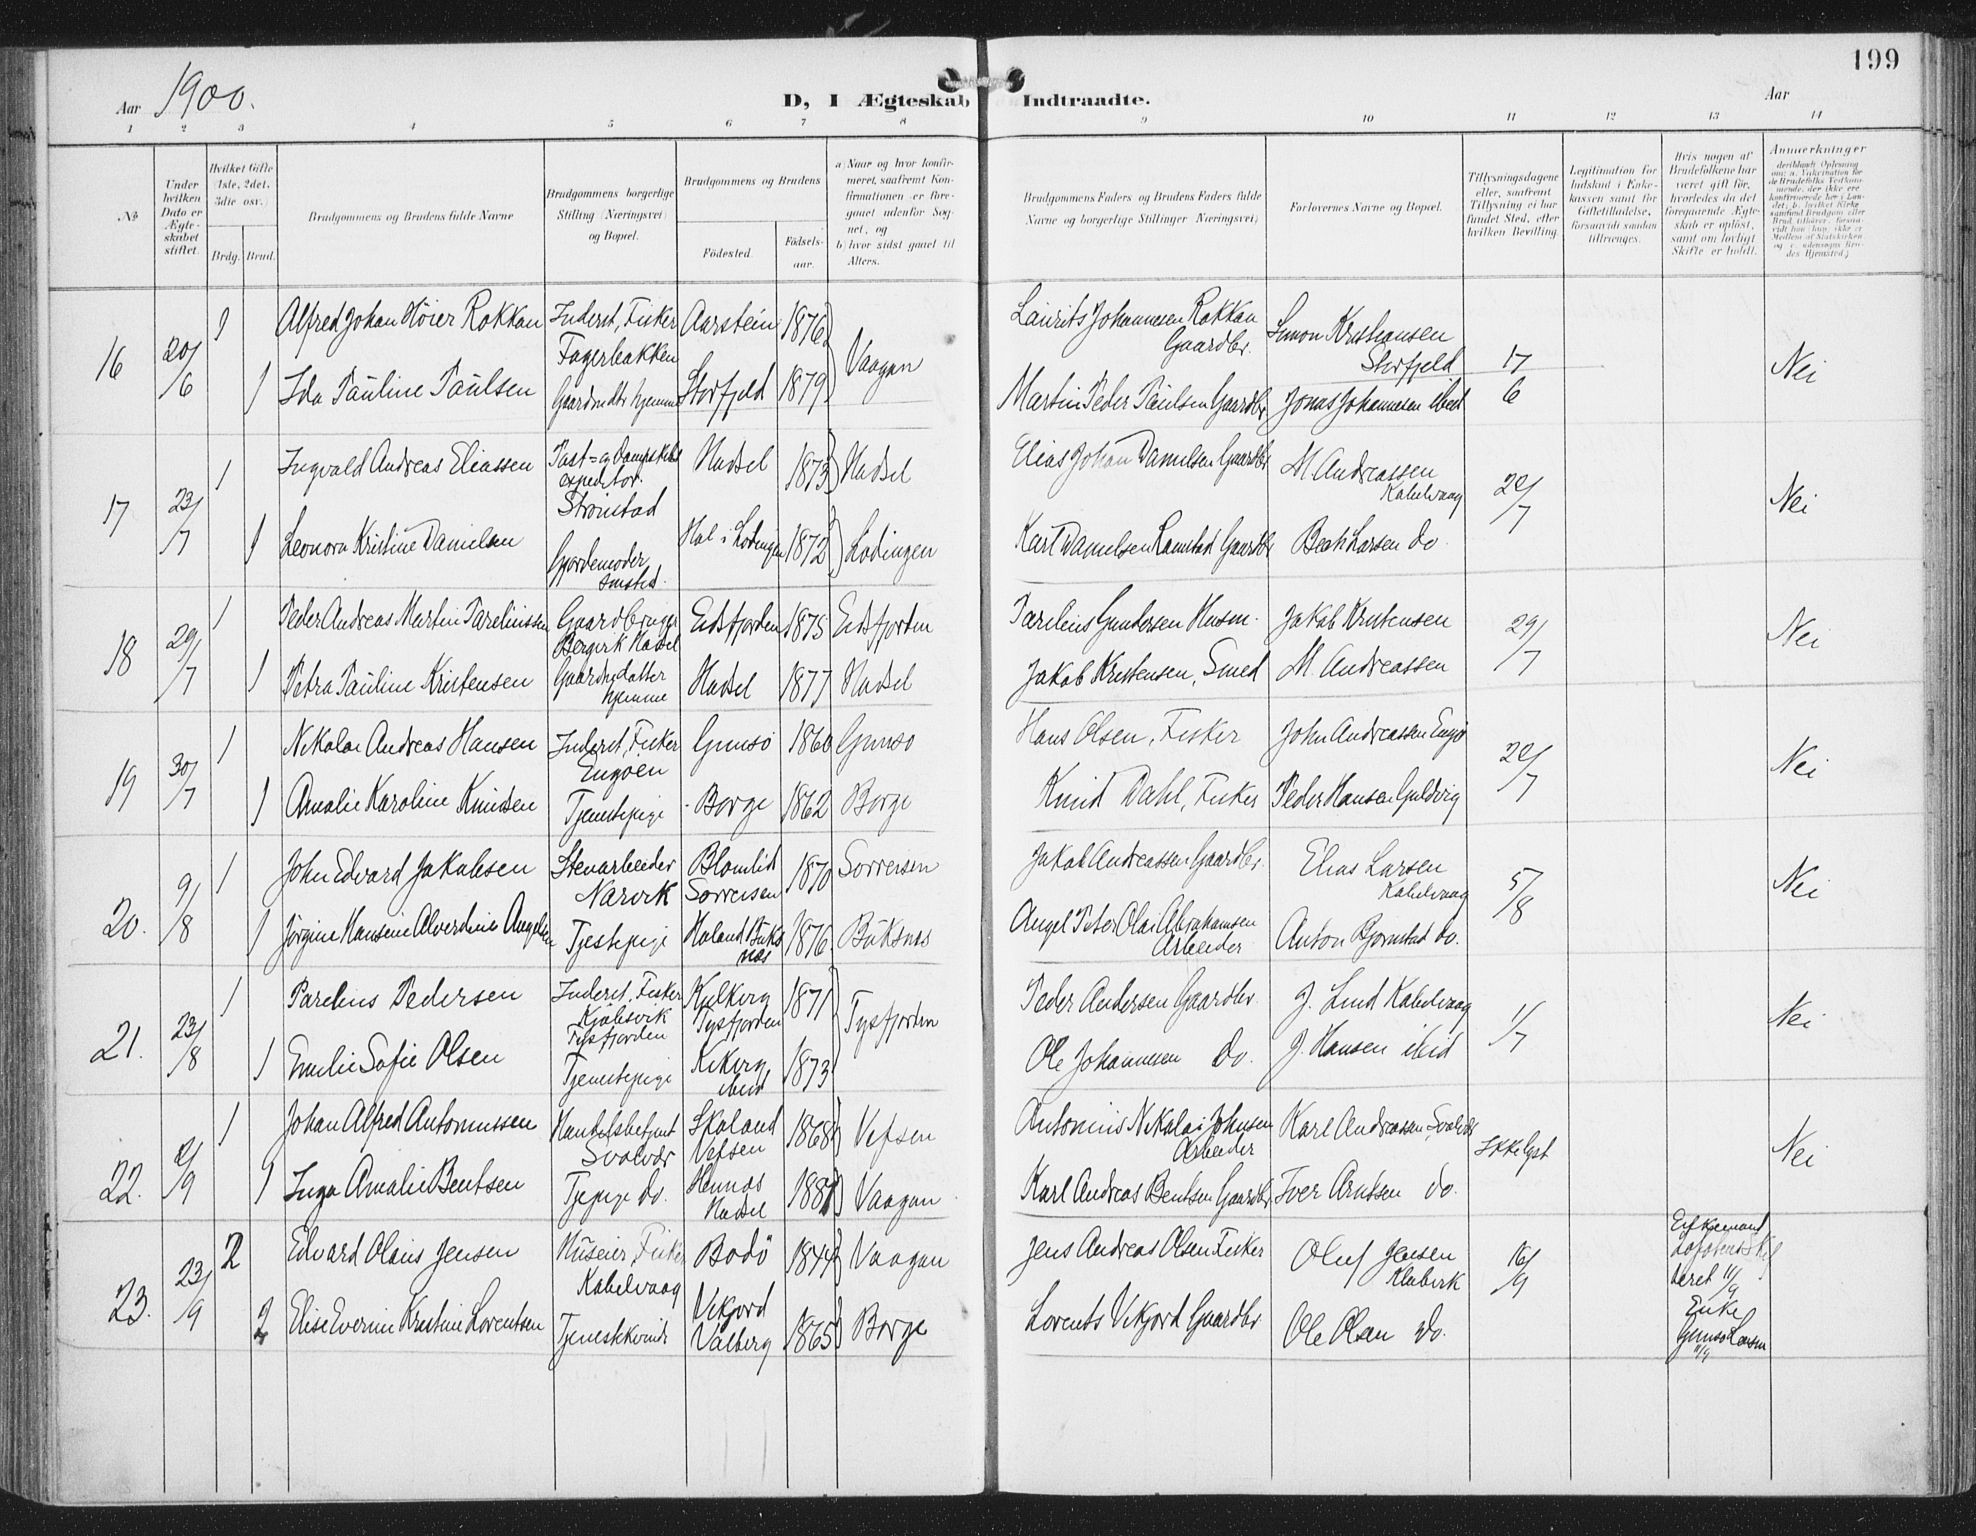 199
Aar 1900.
D, I Ægteskab Indtraadte.
Aar
1 2 3 4 5 6 7 8 9 10 11 12 13 14
№
Under hvilken Dato er Ægteskabet stiftet.
Hvilket Gifte (1ste, 2det, 3die osv.)
Brdg. Brud.
Brudgommens og Brudens fulde Navne
Brudgommens borgerlige Stilling (Næringsvei) og Bopæl.
Brudgommens og Brudens
Fødested.
Fødsels-aar.
a) Naar og hvor konfirmeret, saafremt Konfirmationen er foregaaet udenfor Sognet, og
b) hvor sidst gaaet til Alters.
Brudgommens Faders og Brudens Faders fulde Navne og borgerlige Stillinger (Næringsvei)
Forlovernes Navne og Bopæl.
Tillysningsdagene eller, saafremt Tillysning ei har fundet Sted, efter hvilken Bevilling
Legitimation for Indskud i Enkekassen samt for Giftetilladelse, forsaavidt saadan tiltrænges.
Hvis nogen af Brudefolkene har været gift før, hvorledes da det foregaaende Ægteskab er opløst, samt om lovligt Skifte er holdt.
Anmærkninger
16 20/6 1 Alfred Johan Höier Rokkan Inderst, Fisker Fagerbakken Aarstein 1876 Vaagan Laurits Johannesen Rokkan Gaardbr. Simon Kristiansen Storfjeld 17/6 Nei
1 Ida Pauline Paulsen Gaardmdtr hjemme Storfjeld 1879 Martin Peder Paulsen Gaardbr Jonas Johannesen ibid
17 23/7 1 Ingvald Andreas Eliassen Post- og Dampskibsexpeditør. Strönstad Hadsel 1873 Hadsel Elias Johan Danielsen Gaardbr. M Andreassen Kabelvaag 22/7 Nei
1 Leonora Kristine Danielsen Gjordemoder smsted. Hol i Lödingen 1872 Lödingen Karl Danielsen Ramstad Gaardbr Berth Larsen do.
18 29/7 1 Peder Andreas Martin Pareliussen Gaardbruger Bergvik Hadsel Eidsfjorden 1875 Eidsfjorden Parelius Gundersen Husm. Jakob Kristensen 29/7 Nei
1 Petra Pauline Kristensen Gaardbrdatter hjemme Hadsel 1877 Hadsel Jakob Kristensen, Smed M. Andreassen
19 30/7 1 Nikolai Andreas Hansen Inderst, Fisker Engöen Gimsö 1860 Gimsö Hans Olsen, Fisker John Andreassen Engö 22/7 Nei
1 Amalie Karoline Knudsen Tjenestepige Borge 1862 Borge Knud Dahl, Fisker Peder Hansen Guldvig
20. 9/8 1 John Edvard Jakobsen Stenarbeider Narvik Blomlid Sorreisen 1870 Sorreisen Jakob Andreassen Gaardbr. Elias Larsen Kabelvaag 5/8 Nei
1 Jörgine Hansine Alverdine Angelsen Tjestepige Holand Buksnæs 1876 Buksnæs Angel Peter Olai Abrahamsen Arbeider Anton Bjornstad do.
21. 23/8 1 Parelius Pedersen Inderst, Fisker Kjöbsvik Tysfjorden Tysfjorden 1871 Tysfjorden Peder Andersen Gaardbr. J. Lind Kabelvaag 1/7 Nei
1 Emilie Sofie Olsen Tjenestepige ibid 1873 Ole Johannesen do. J. Hansen ibid
22. 2/9 1 Johan Alfred Antoniussen Handelsbetjent Svolvær Skaland Vefsen 1868 Vefsen Antonius Nikolai Johnsen Arbeider Karl Andreasen Svolvær Ikke lyst Nei
1 Inga Amalie Bentsen Tjepige do. Hennæs Hadsel 1881 Vaagan Karl Andreas Bentsen Gaardbr. Iver Arntsen do.
23. 23/9 2 Edvard Olaus Jensen Huseier Fisker Kabelvaag Bodö 1844 Vaagan Jens Andreas Olsen Fisker Oluf Jensen Klubvik 16/9 Enkemand 11/9
2 Elise Evenine Kristine Lorentsen Tjenestekvinde Vikjord Valberg 1865 Borge Lorents Vikjord Gaardbr. Ole Olsen do. Enke 11/9